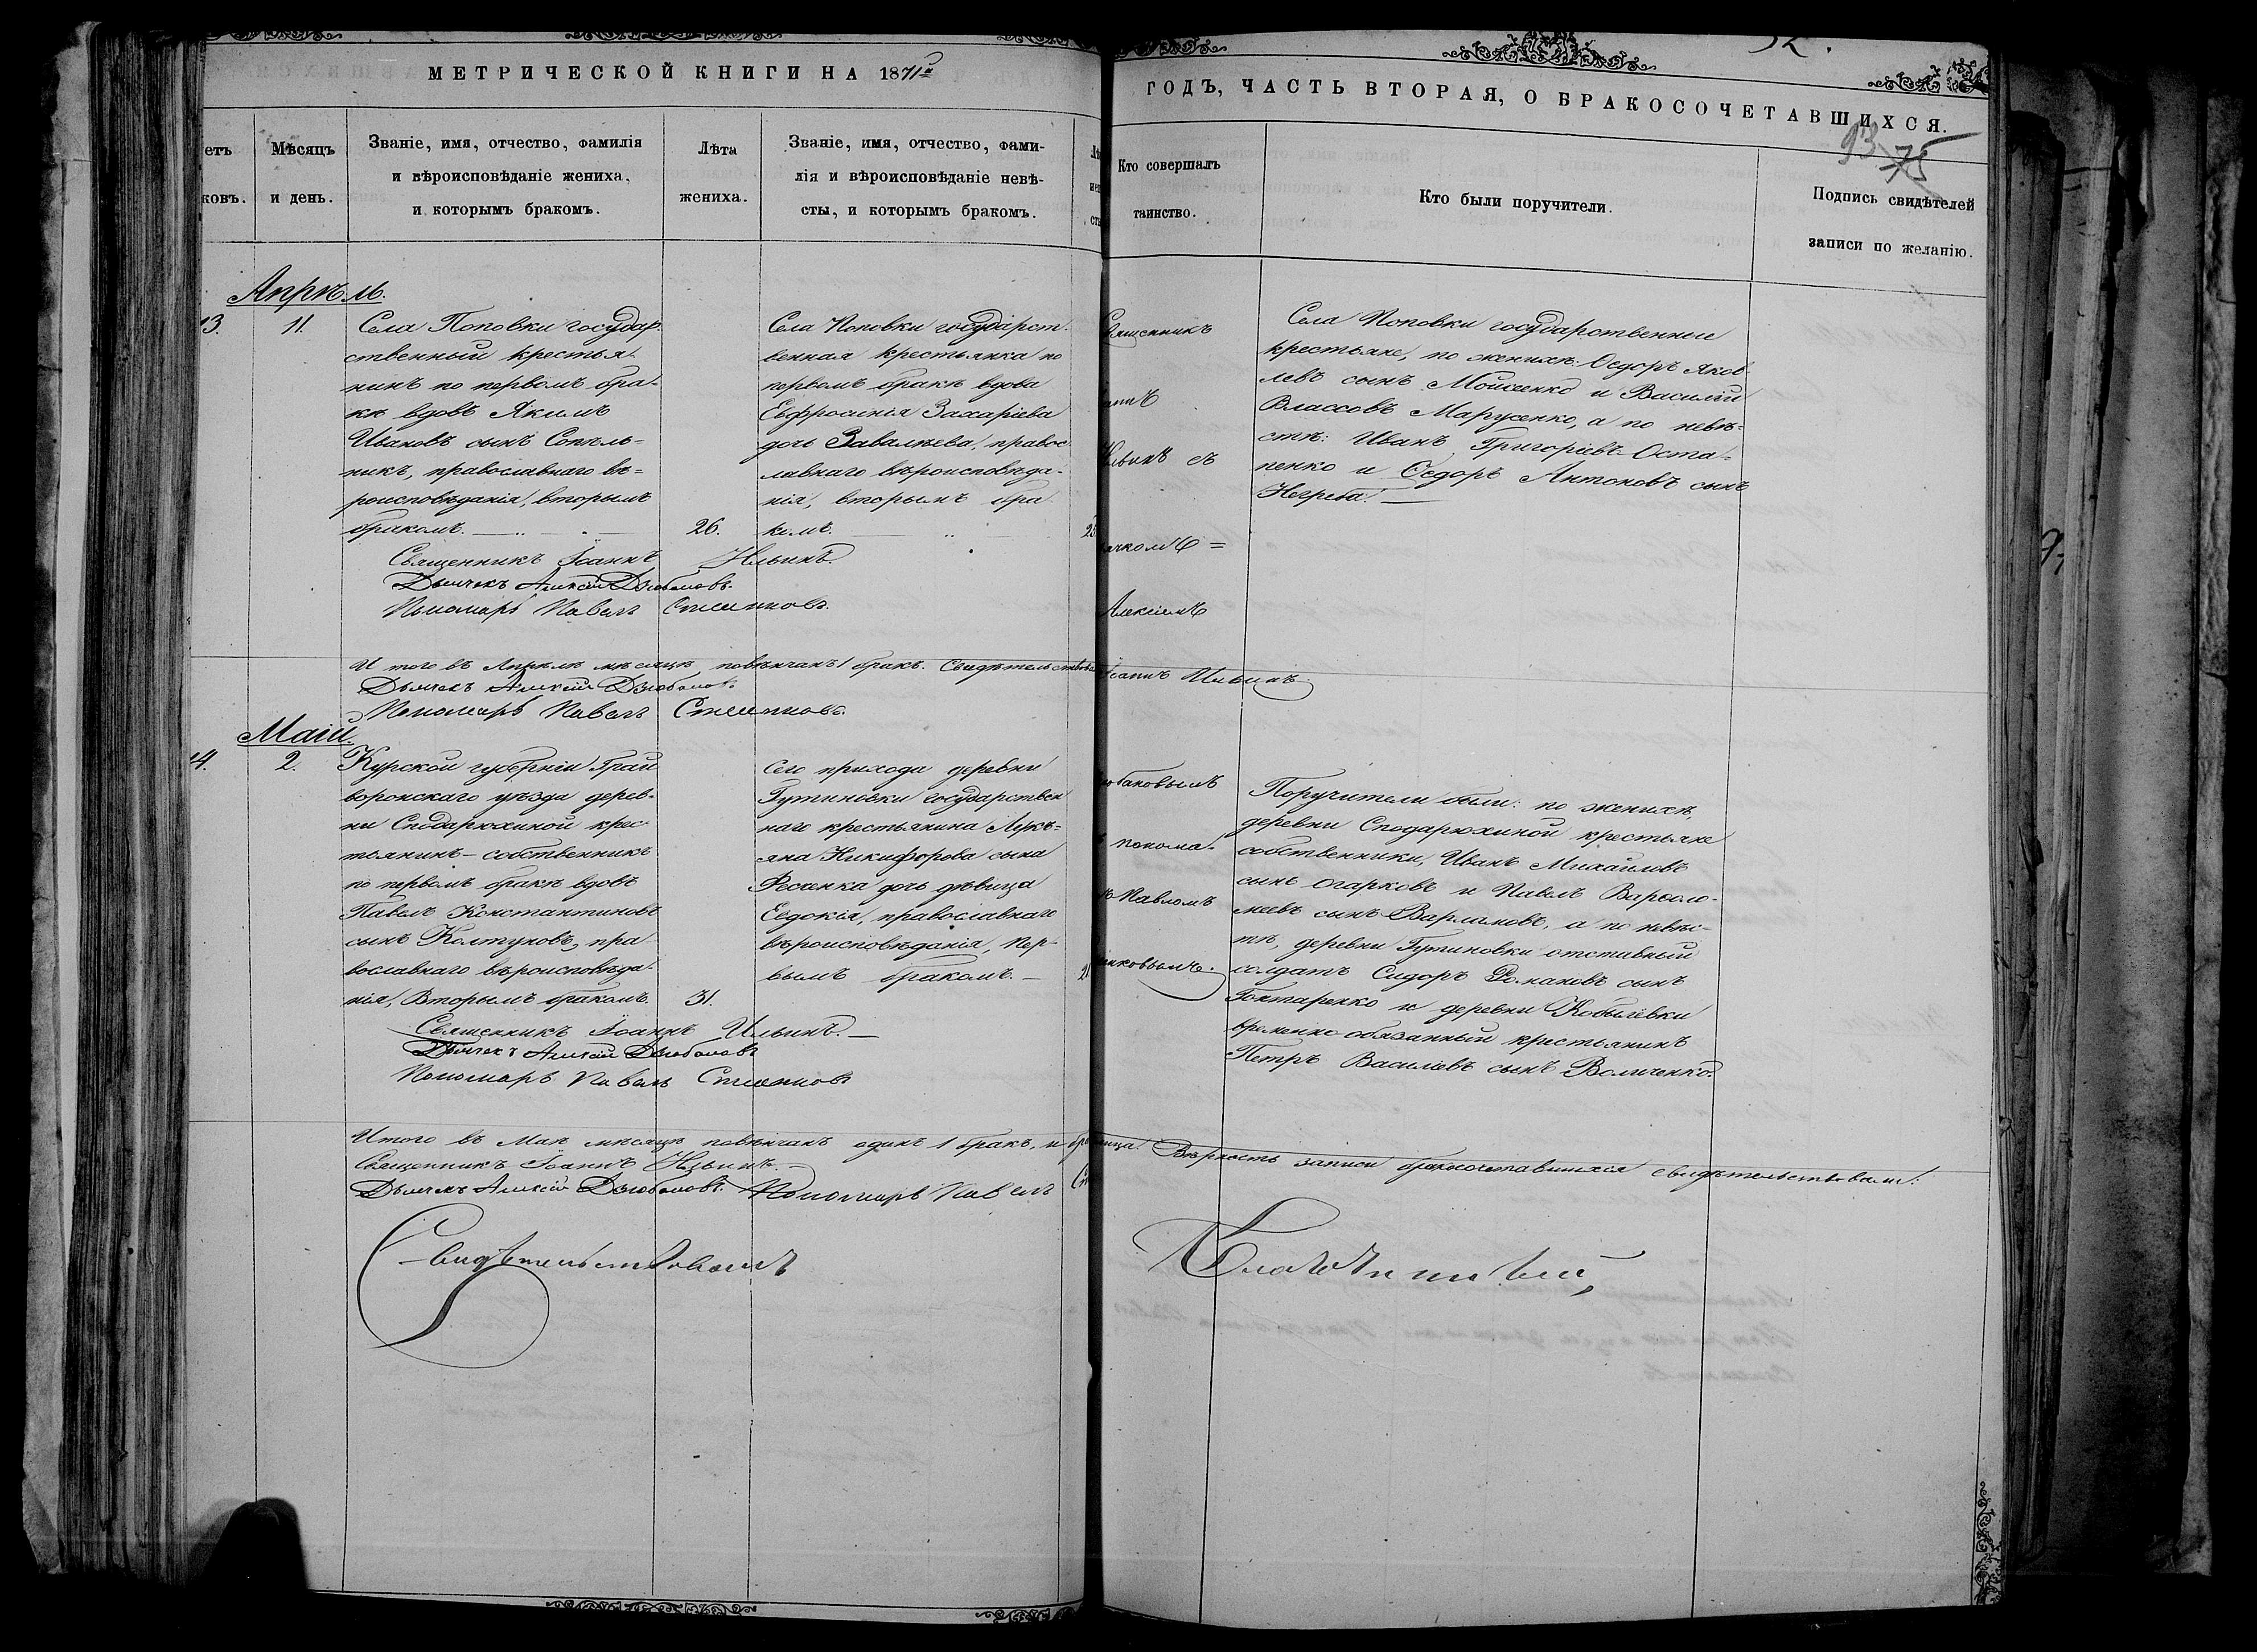 МЕТРИЧЕСКОЙ КНИГИ НА 1871й
ГОДЪ, ЧАСТЬ ВТОРАЯ, О БРАКОСОЧЕТАВШИХСЯ.
93
75
етъ
ковъ.
Мѣсяцъ
и день.
Званіе, имя, отчество, фамилія
и вѣроисповѣданіе жениха,
и которымъ бракомъ.
Лѣта
жениха.
Званіе, имя, отчество, фами-
лія и вѣроисповѣданіе невѣ-
сты, и которымъ бракомъ.
Кто совершалъ
таинство.
Кто были поручители.
Подпись свидѣтелей
записи по желанію.
Апрѣль.
13.
11.
Села Поповки государ-
ственный крестья-
нинъ по первомъ бра-
кѣ вдовъ Якимъ
Ивановъ сынъ Сопѣль-
никъ, православнаго вѣ-
роисповѣданія, вторымъ
бракомъ.
26.
Села Поповки государст-
венная крестьянка по
первомъ бракѣ вдова
Евфросинія Захаріева
дочь Завалѣева, правос-
лавнаго вѣроисповѣда-
нія, вторымъ бра-
комъ.
Священникъ
Ильинъ съ
ячкомъ =
Алексіемъ
Села Поповки государственные
крестьяне, по женихѣ: Ѳедоръ Яков-
левъ сынъ Мойсеенко и Василій
Влассовъ Марусенко, а по невѣ-
стѣ: Иванъ Григоріевъ Оста-
пенко и Ѳедоръ Антоновъ сынъ
Негреба.
Священникъ Іоаннъ Ильинъ.
Дьячекъ Алексій Дзюбановъ.
Пономарь Павелъ
И того въ Апрѣлѣ мѣсяцѣ повѣнчанъ 1 бракъ. Іоаннъ Ильинъ.
Дьячекъ Алексій Дзюбановъ.
Пономарь Павелъ
Маій.
14.
2.
Курской губерніи Грай-
воронскаго уѣзда дерев-
ни Сподарюхиной крес-
тьянинъ-собственникъ
по первомъ бракѣ вдовъ
Павелъ Константиновъ
сынъ Колтуновъ, пра-
вославнаго вѣроисповѣда-
нія, вторымъ бракомъ.
31.
Сего прихода деревни
Гутниновки государствен-
наго крестьянина Лукь-
яна Никифорова сына
Фесенка дочь дѣвица
Евдокія, православнаго
вѣроисповѣданія, пер-
вымъ бракомъ.
юбановымъ
понома-
Павломъ
нковымъ.
Поручители были: по женихѣ,
деревни Сподарюхиной крестьяне
собственники, Иванъ Михайловъ
сынъ Огарковъ и Павелъ Варѳоло-
меевъ сынъ Варламовъ, а по невѣс-
тѣ, деревни Гутниновки отставный
солдатъ Сидоръ Романовъ сынъ
Гонтаренко и деревни Кобылевки
временно-обязанный крестьянинъ
Петръ Василіевъ сынъ Воличенко.
Священникъ Іоаннъ Ильинъ.
Дьячекъ Алексій Дзюбановъ
Пономарь Павелъ
Итого въ Маѣ мѣсяцѣ повѣнчанъ одинъ 1 бракъ, Вѣрность записи бракосочетавшихся свидѣтельствовали:
Священникъ Іоаннъ Ильинъ.
Дьячекъ Алексій Дзюбановъ. Пономарь Павелъ
Свидѣтельствовалъ
Благочинный,